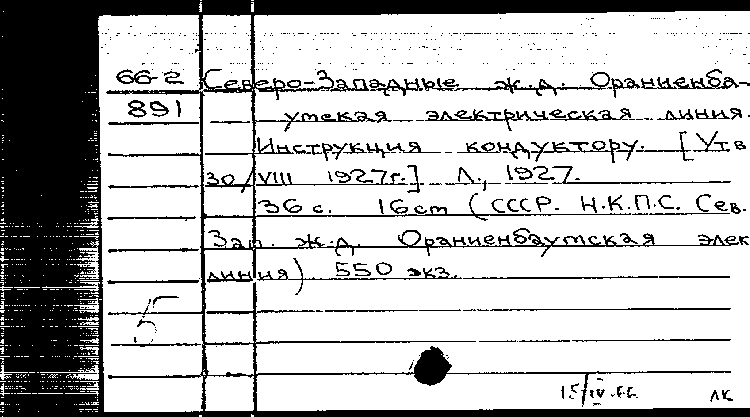 66-2 Северо-Западные ж.д. Ораниенба-
891 умская электрическая линия.
Инструкция кондуктору. [Утв
30/VIII 1927г.] Л., 1927.
36 с. 16 cm (СССР. Н.К.П.С. Сев.
Зап. ж.д. Ораниенбаумская элек
линия) 550 экз.
5
15/IV-66 ЛК